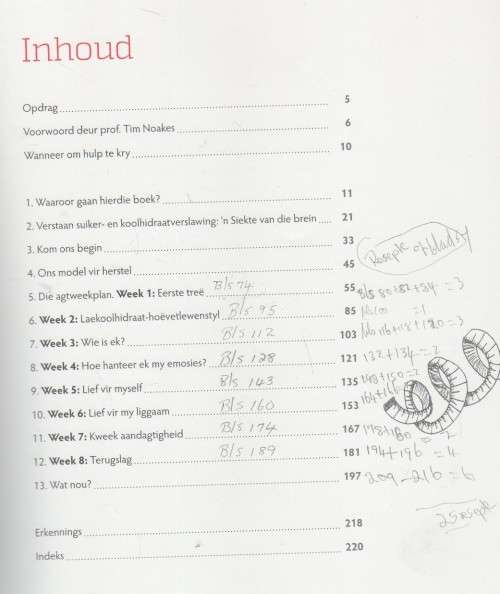 Inhoud
Opdrag 5
Voorwoord deur prof. Tim Noakes 6
Wanneer om hulp te kry 10
1. Waaroor gaan hierdie boek? 11
2. Verstaan suiker- en koolhidraatverslawing: 'n Siekte van die brein 21
3. Kom ons begin 33
4. Ons model vir herstel 45
5. Die agtweekplan. Week 1: Eerste treë B/s 74 55
6. Week 2: Laekoolhidraat-hoëvetlewenstyl B/s 95 85
7. Week 3: Wie is ek? B/s 112 103
8. Week 4: Hoe hanteer ek my emosies? B/s 128 121
9. Week 5: Lief vir myself B/s 143 135
10. Week 6: Lief vir my liggaam B/s 160 153
11. Week 7: Kweek aandagtigheid B/s 174 167
12. Week 8: Terugslag B/s 189 181
13. Wat nou? 197
Erkennings 218
Indeks 220
B/s 80+82+84 = 3
= 1
= 3
132+134 = 2
148+150 = 2
= 2
194+196 = 4
209-216 = 6